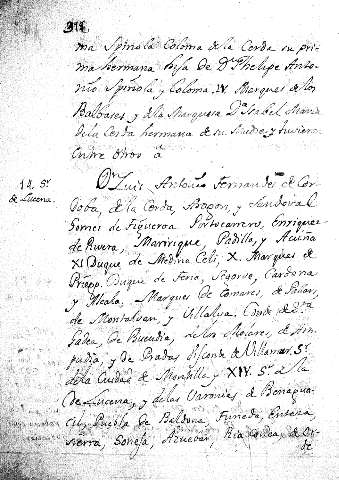 ma Spinola Coloma de la Cerda su pri-
ma hermana hija de Dn. Phelipe Anto-
nio Spinola y Coloma IV Marques de los
Balbases y de la Marquesa Da. Isabel Maria
de la Cerda hermana de su Madre, y tuvieron
entre otros à
14 Sr.
de Lucena.
Dn. Luis Antonio Fernandez de Cor-
doba, de la Cerda, Aragon, y Sandoval
Gomez de Figueroa Portocarrero, Enriquez
de Rivera, Manrique, Padilla, y Acuña
XI Duque de Medina Celi, X. Marques de
Priego Duque de Feria, Segorve, Cardona
y Alcala, Marques de Comares, de Pallars,
de Montalvan, y Villalva, Conde de Sta.
Gadea, de Buendia, de los Molares, de Am-
pudia, y de Prades Vizconde de Villamur, Sr.
de la Ciudad de Montilla y XIV. Sr. de la
de Lucena, y de las Varonias de Benagua-
cil, Puebla de Entenza,
Sierra, Soneja, Azuebar,